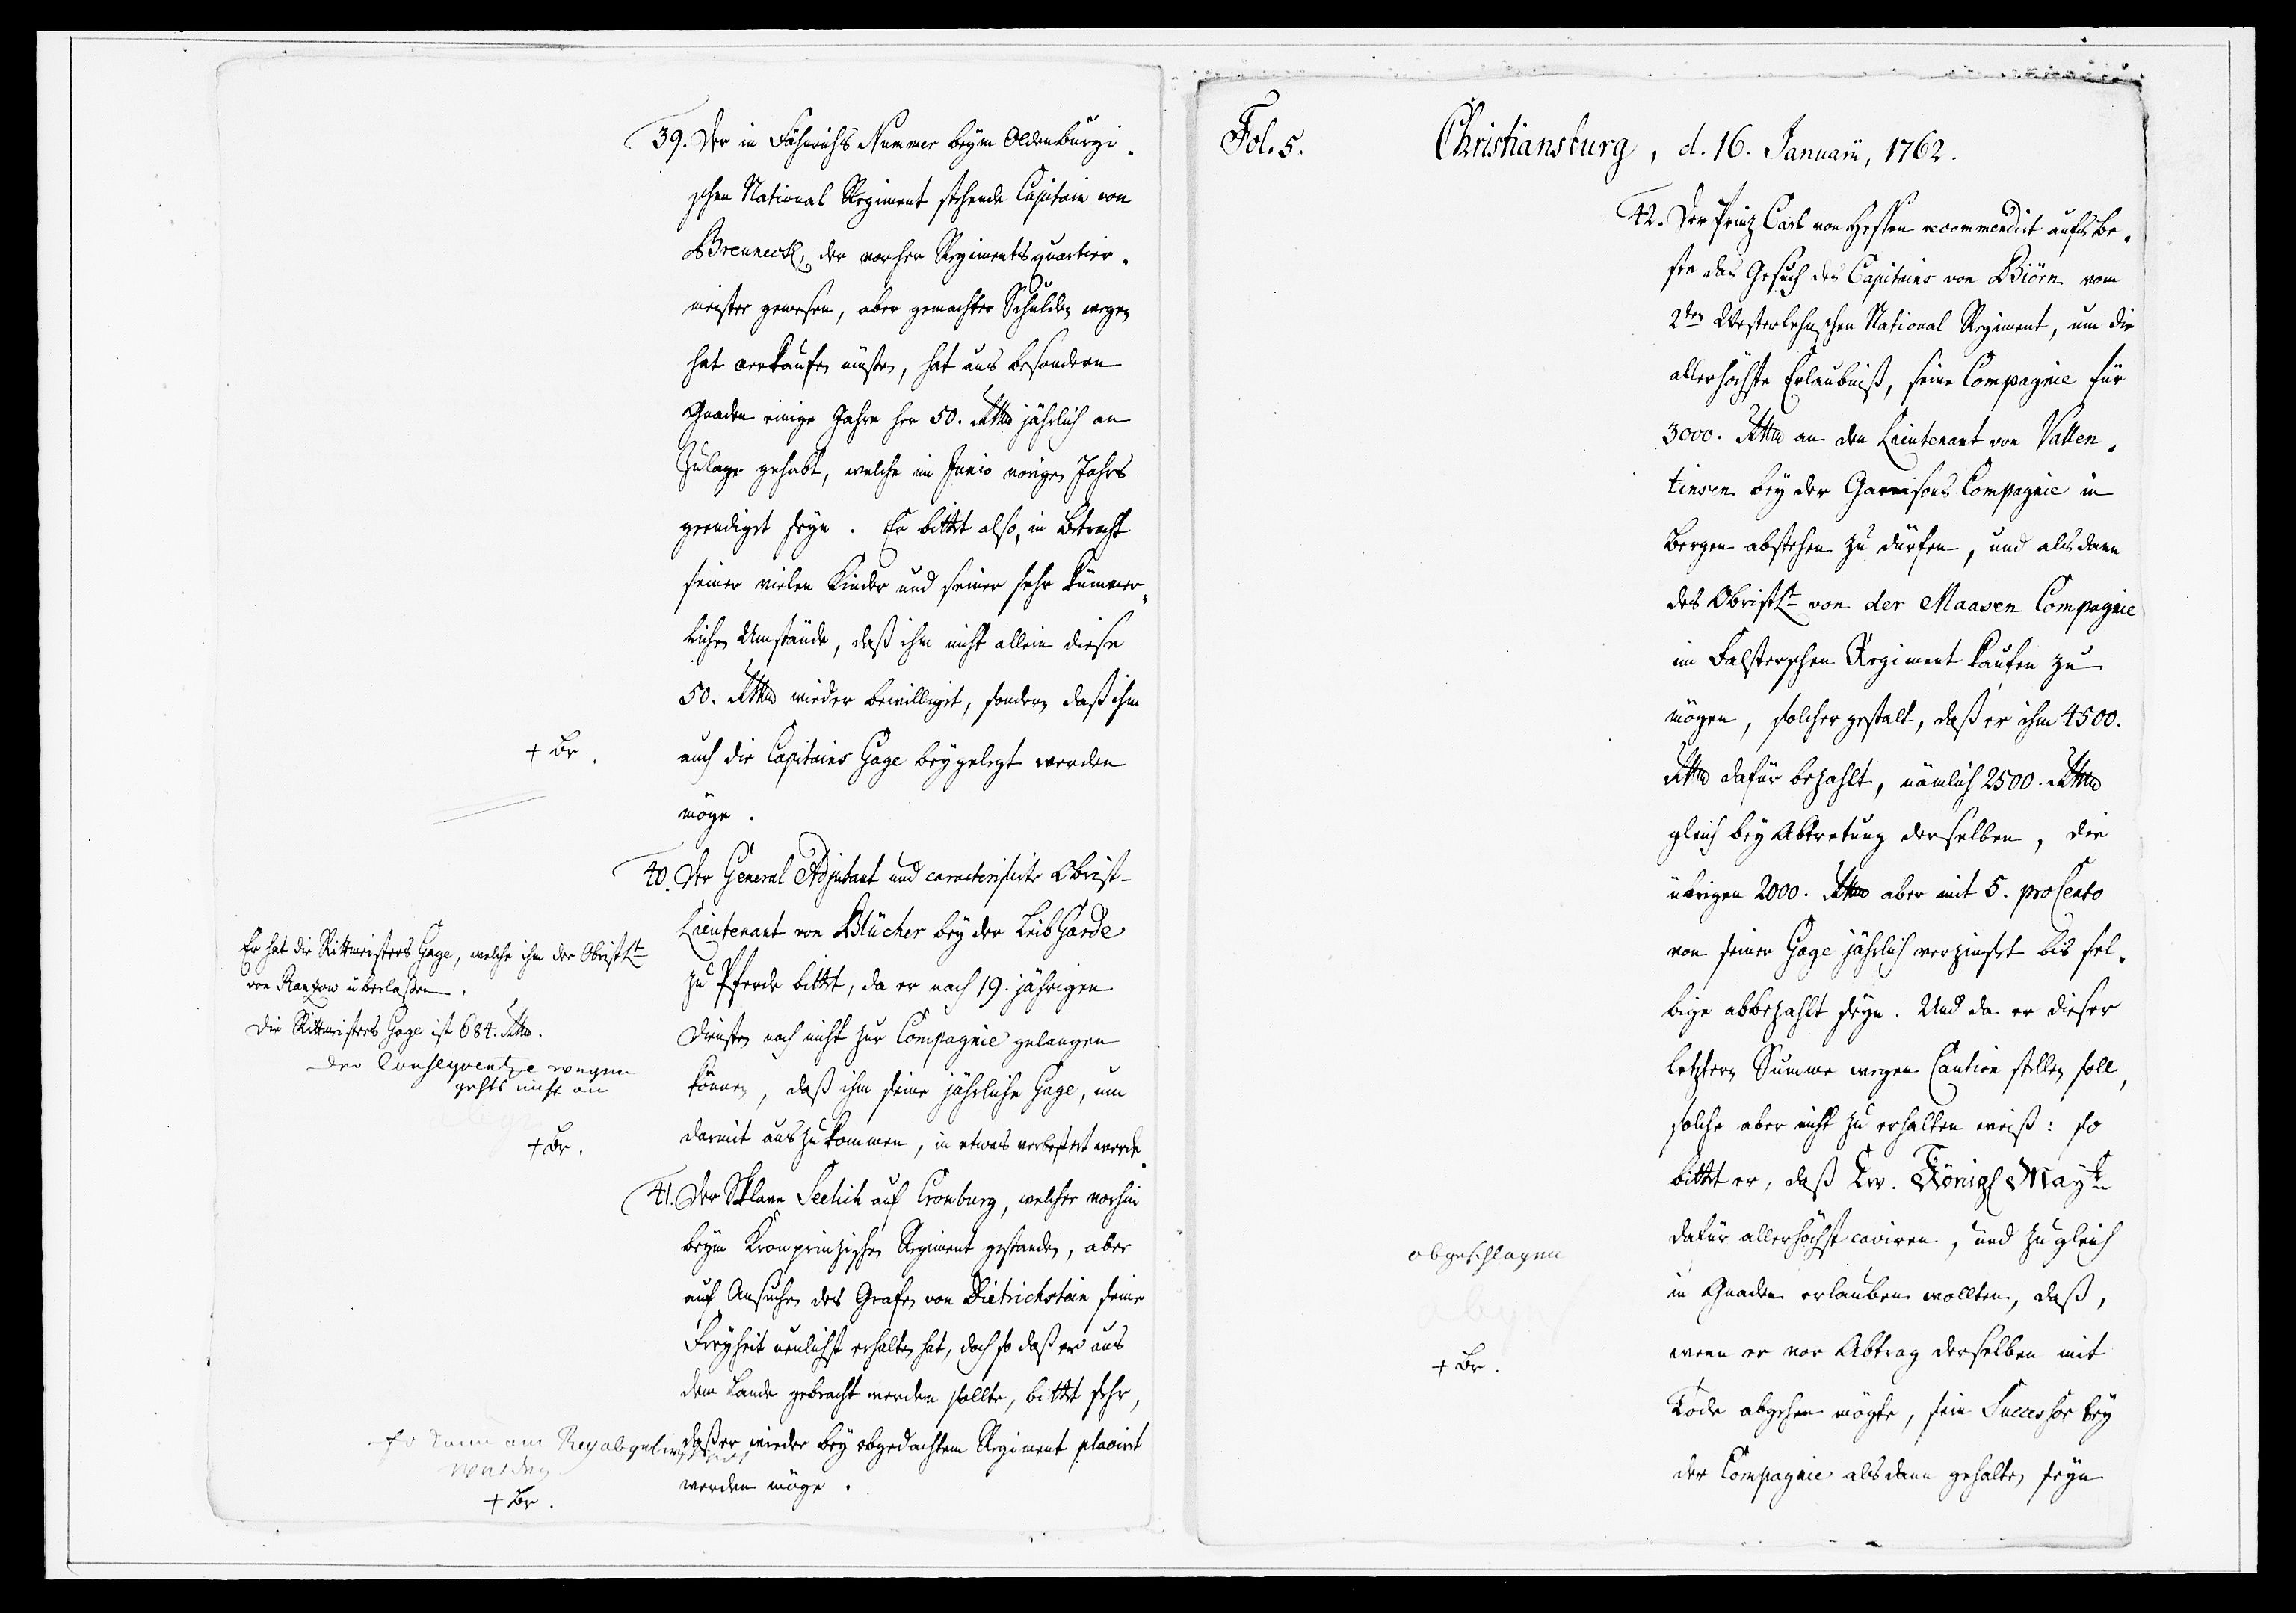 39. Der in Fähnrichs Nummer beym Oldenburgi-
schen National Regiment stehende Capitain von
Brenneck, der vorher Regimentsquartier-
meister gewesen, aber gemachter Schulden wegen
hat verkaufen müßen, hat aus besondern
Gnaden einige Jahre her 50. Rthlr jährlich an
Zulage gehabt, welche im Junio vorigen Jahrs
geendiget seyn. Er bittet also, in Betracht
seiner vielen Kinder und seiner sehr kümmer-
lichen Umstände, daß ihm nicht allein diese
50. Rthlr wieder bewilliget, sondern daß ihm
auch die Capitains Gage beygelegt werden
möge.
+ Br.
40. Der General Adjutant und caracterisirte Obrist-
Lieutenant von Blücher bey der Leib Garde
zu Pferde bittet, da er nach 19. jährigen
Diensten noch nicht zur Compagnie gelangen
können, daß ihm seine jährliche Gage, um
darmit auszukommen, in etwas verbeßert werde.
Er hat die Rittmeisters Gage, welche ihm der ObristLt
von Ranzow überlaßen.
Die Rittmeisters Gage ist 684. Rthlr.
der Consequentze wegen
gehts nicht an
+ Br.
41. Der Sklave Seelich auf Cronburg, welcher vorhin
beym Kronprinzischen Regiment gestanden, aber
auf Ansuchen des Grafen von Dietrichstein seine
Freyheit neulichst erhalten hat, doch so daß er aus
dem Lande gebracht werden sollte, bittet sehr,
daß er wieder bey obgedachtem Regiment placiret
werden möge.
werden
+ Br.
Fol. 5.
Christiansburg, d. 16. Januarii, 1762.
42. Der Prinz Carl von Hessen recommendirt aufs be-
ste das Gesuch des Capitains von Biörn vom
2ten Westerlehnschen National Regiment, um die
allerhöchste Erlaubniß, seine Compagnie für
3000. Rthlr an den Lieutenant von Vallen-
tinsen bey der Garnisons Compagnie in
Bergen abstehen zu dürfen, und alsdann
des ObristLt von der Maasen Compagnie
im Falsterschen Regiment kaufen zu
mögen, solcher gestalt, daß er ihm 4500.
Rthlr dafür bezahlt, nämlich 2500. Rthlr
gleich bey Abtretung derselben, die
übrigen 2000. Rthlr aber mit 5. pro Cento
von seiner Gage jährlich verzinset bis sel-
bige abbezahlt seyn. Und da er dieser
letztern Summe wegen Caution stellen soll,
solche aber nicht zu erhalten weiß: so
bittet er, daß Ew. Königl Mayt
dafür allerhöchst caviren, und zugleich
in Gnaden erlauben wollten, daß,
wenn er vor Abtrag derselben mit
Tode abgehen mögte, sein Successor bey
der Compagnie alsdann gehalten seyn
abgeschlagen
+ Br.